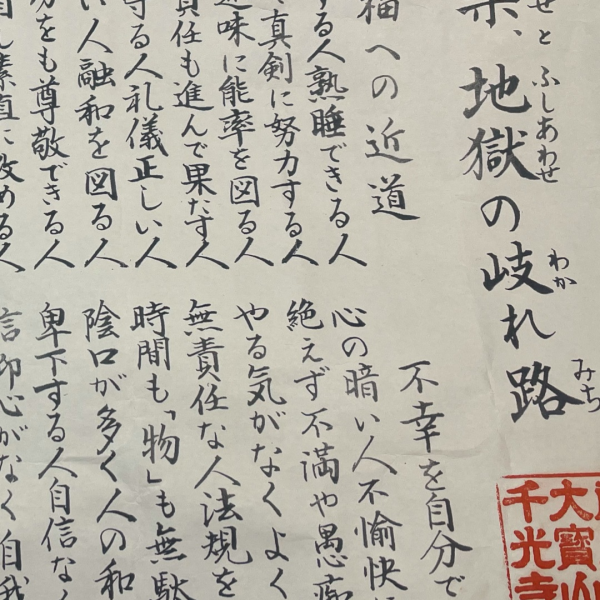 せと ふしあわせ
楽、地獄の岐れ路
わか
みち
福への近道
する人熟睡できる人
真剣に努力する人
趣味に能率を図る人
責任も進んで果たす人
守る人礼儀正しい人
い人融和を図る人
をも尊敬できる人
素直に改める人
不幸を自分で
心の暗い人不愉快
絶えず不満や愚痴
やる気がなくよく
無責任な人法規を
時間も「物」も無駄
陰口が多く人の和
卑下する人自信なく
信仰心がなく自我
大寶山
千光寺